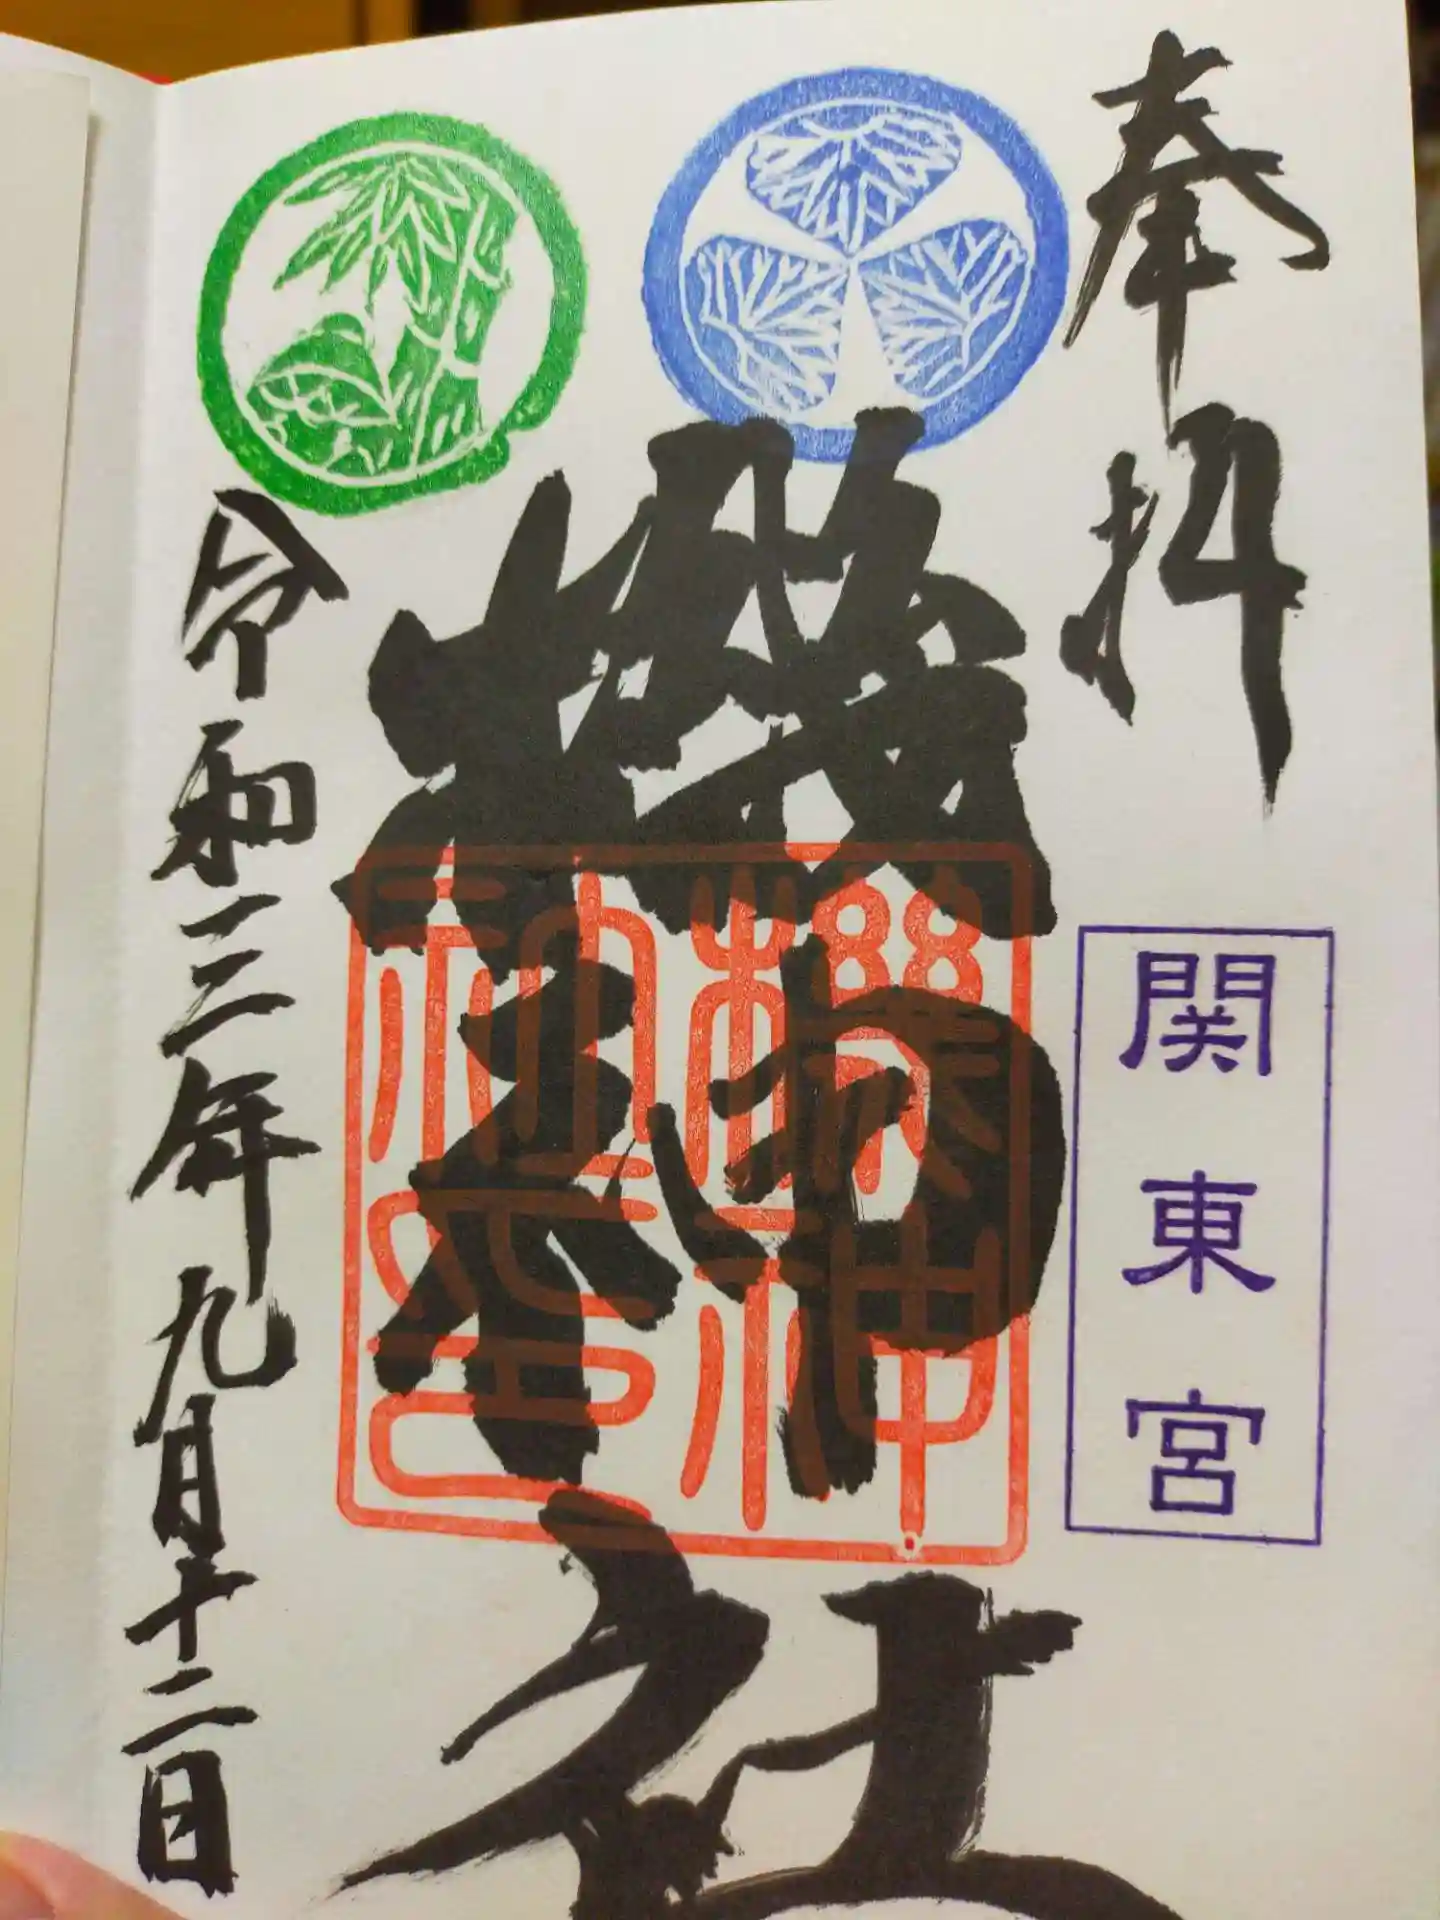 奉拝
関東宮
機神社
機神社之印
令和三年九月十二日